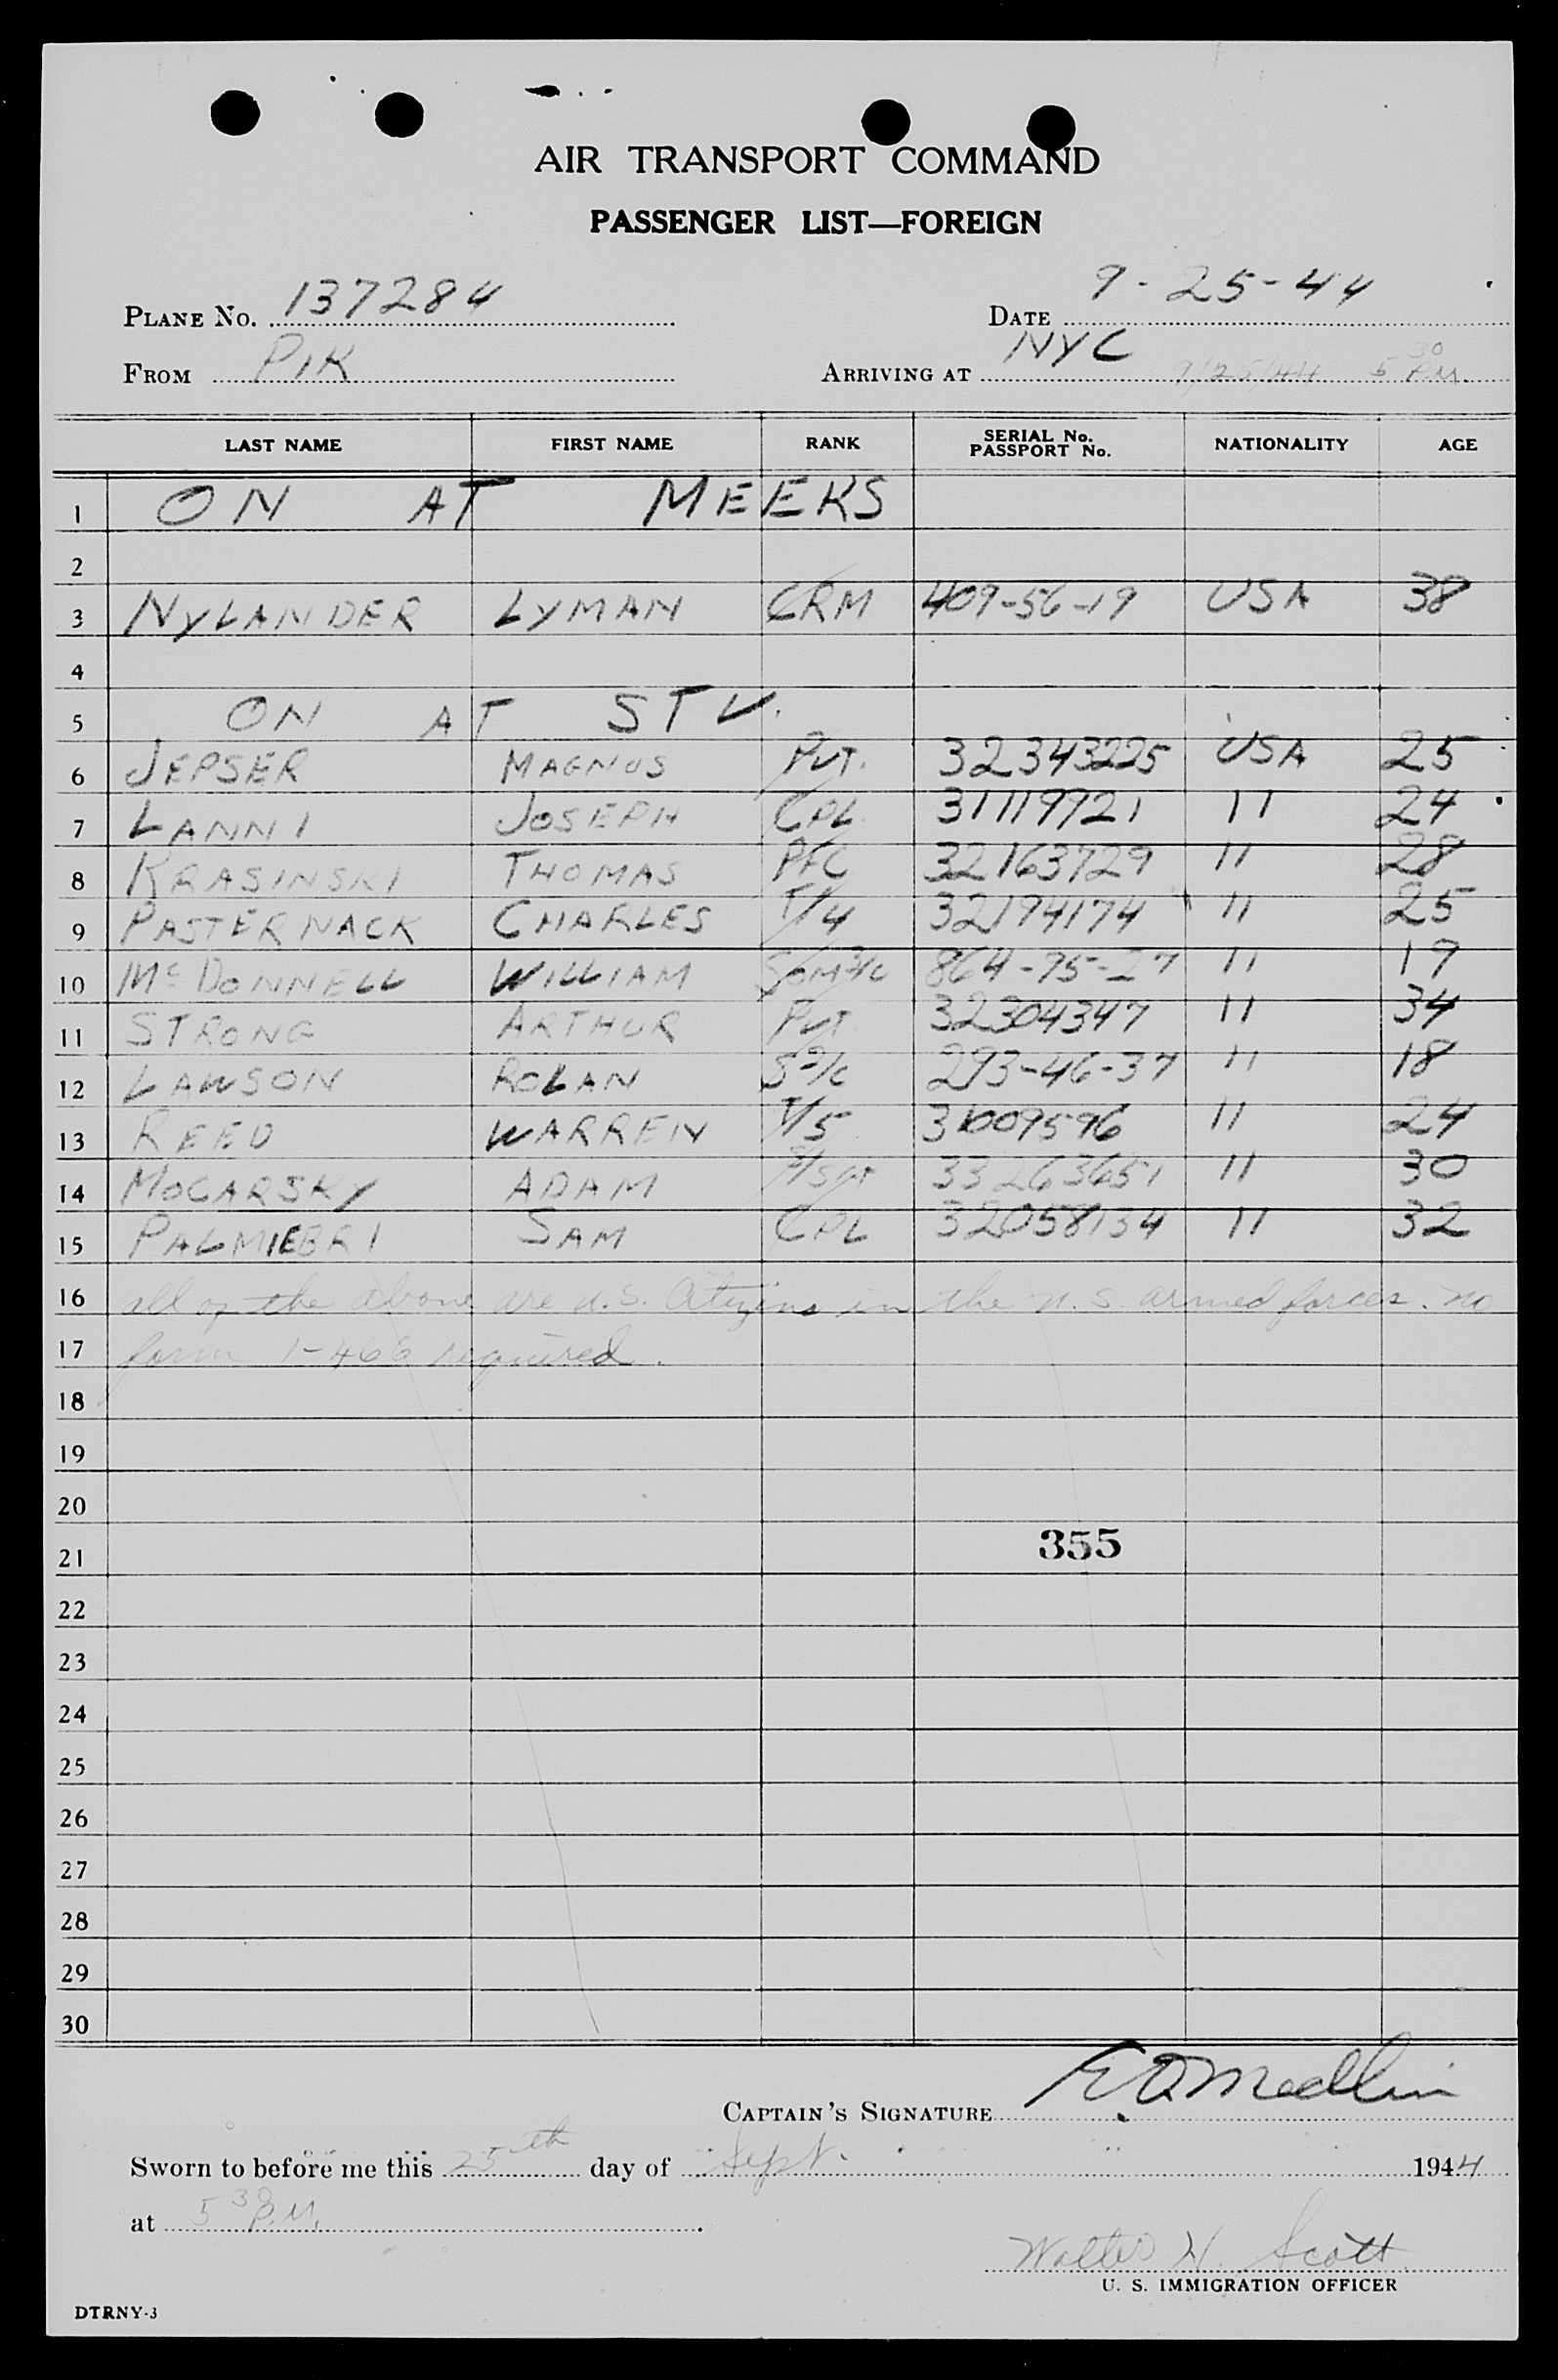 AIR TRANSPORT COMMAND
PASSENGER LIST—FOREIGN
PLANE NO. 137284 DATE 9-25-44
FROM PIK ARRIVING AT NYC 9/25/44 5 30 P.M.
LAST NAME FIRST NAME RANK SERIAL No. PASSPORT No. NATIONALITY AGE
1 ON AT MEEKS
2
3 NYLANDER LYMAN CRM 409-56-19 USA 38
4
5 ON AT STV.
6 JEPSER MAGNUS PVT. 32343225 USA 25
7 LANNI JOSEPH CPL 31119921 " 24
8 KRASINSKI THOMAS PFC 32163729 " 28
9 PASTERNACK CHARLES T/4 32194174 " 25
10 McDONNELL WILLIAM SOM3/c 864-75-27 " 19
11 STRONG ARTHUR PVT 32304347 " 34
12 LAWSON ROLAN S2/c 293-46-37 " 18
13 REED WARREN T/5 31009596 " 24
14 MOCARSKY ADAM /SGT 33263651 " 30
15 PALMIERI SAM CPL 32058134 " 32
16 all of the above are U.S. Citizens in the U.S armed forces. No
17 form I-466 required.
18
19
20
21 355
22
23
24
25
26
27
28
29
30
CAPTAIN'S SIGNATURE E.O. Medlin
Sworn to before me this 25th day of Sept. 1944
at 5 30 P.M.
Walter H. Scott
U. S. IMMIGRATION OFFICER
DTRNY-3